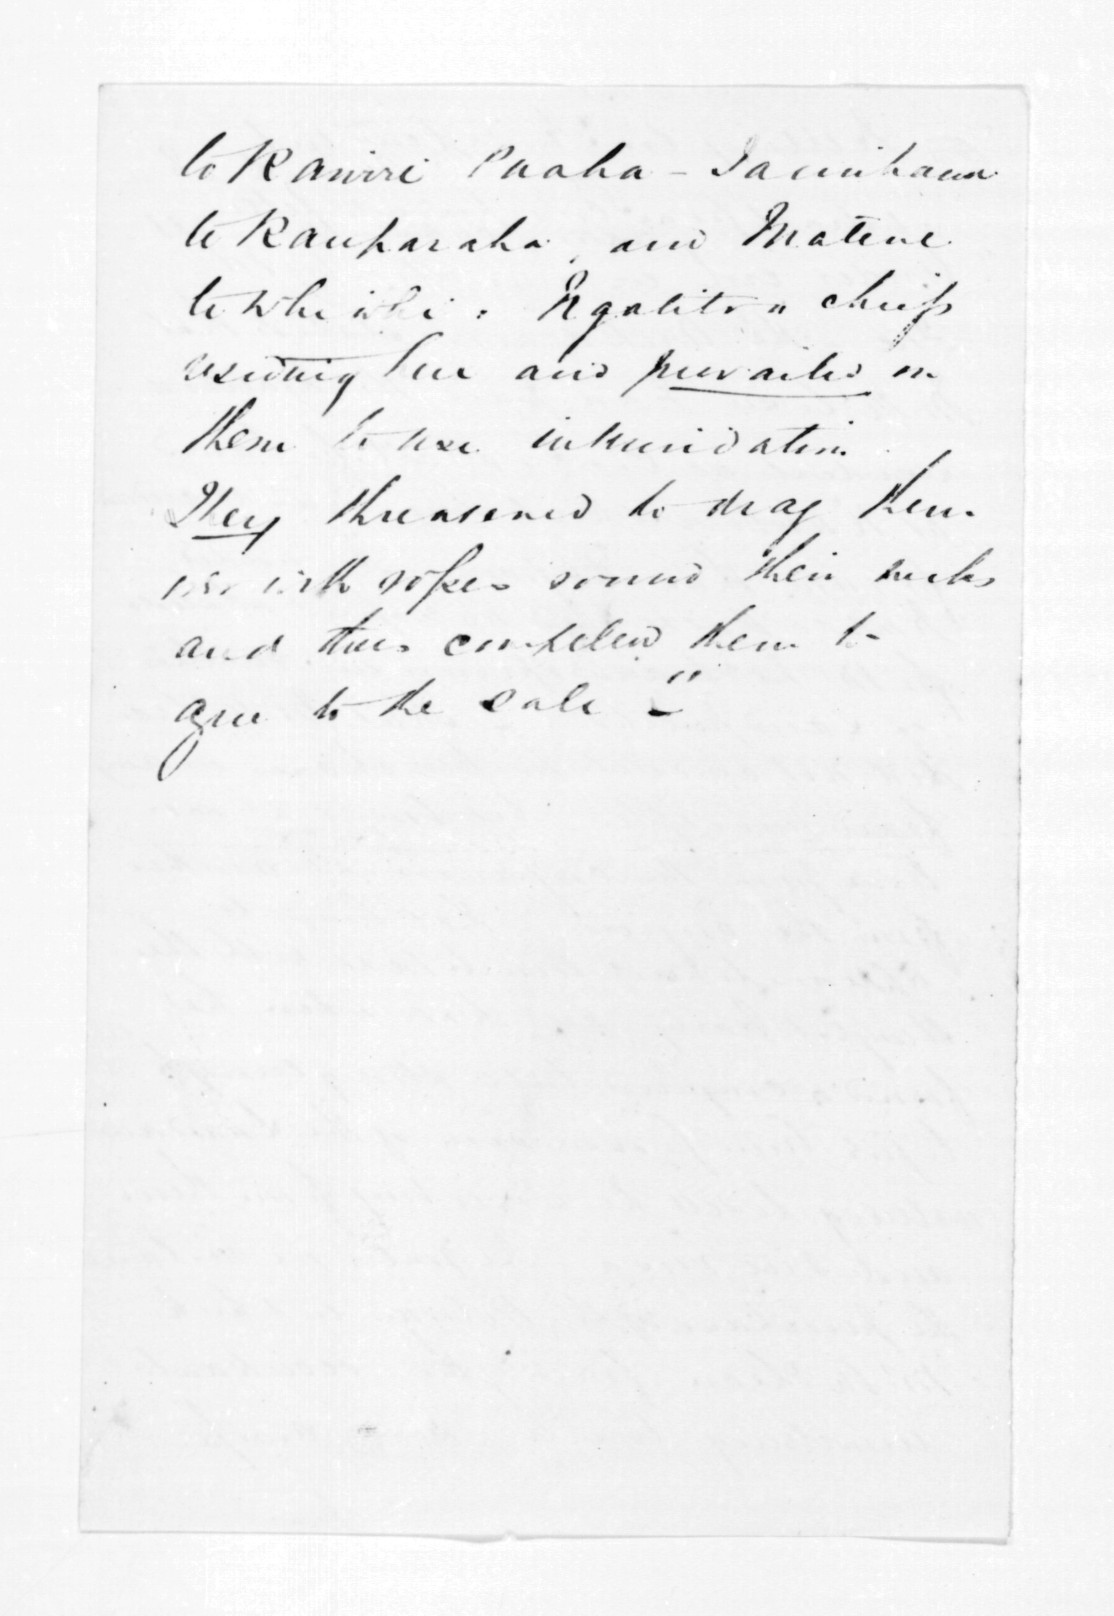 to Rawiri Puaha - Tamihana
te Rauparaha, and Matene
te Whiwhi. Ngatitoa chiefs
residing here and prevailed on
them to use intimidation.
They threatened to drag them
over with ropes round their necks
and thus compelled them to
agree to the sale"